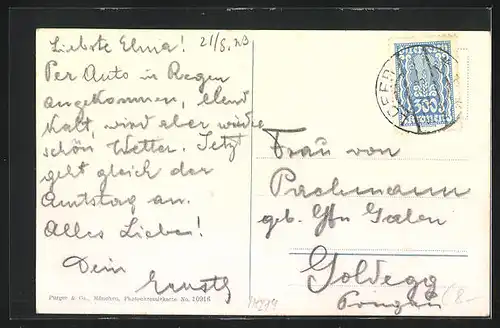 Liebste Elma! 21/8.23
Per Auto in Regen
angekommen, elend
kalt, wird aber wieder
schön Wetter. Jetzt
geht gleich der
Amtstag an.
Alles Liebe!
Dein
Purger & Co., München, Photochromiekarte No. 10916
300
Kronen
Frau von
Pachmann
geb. Gfn Galen
Goldegg
Pongau